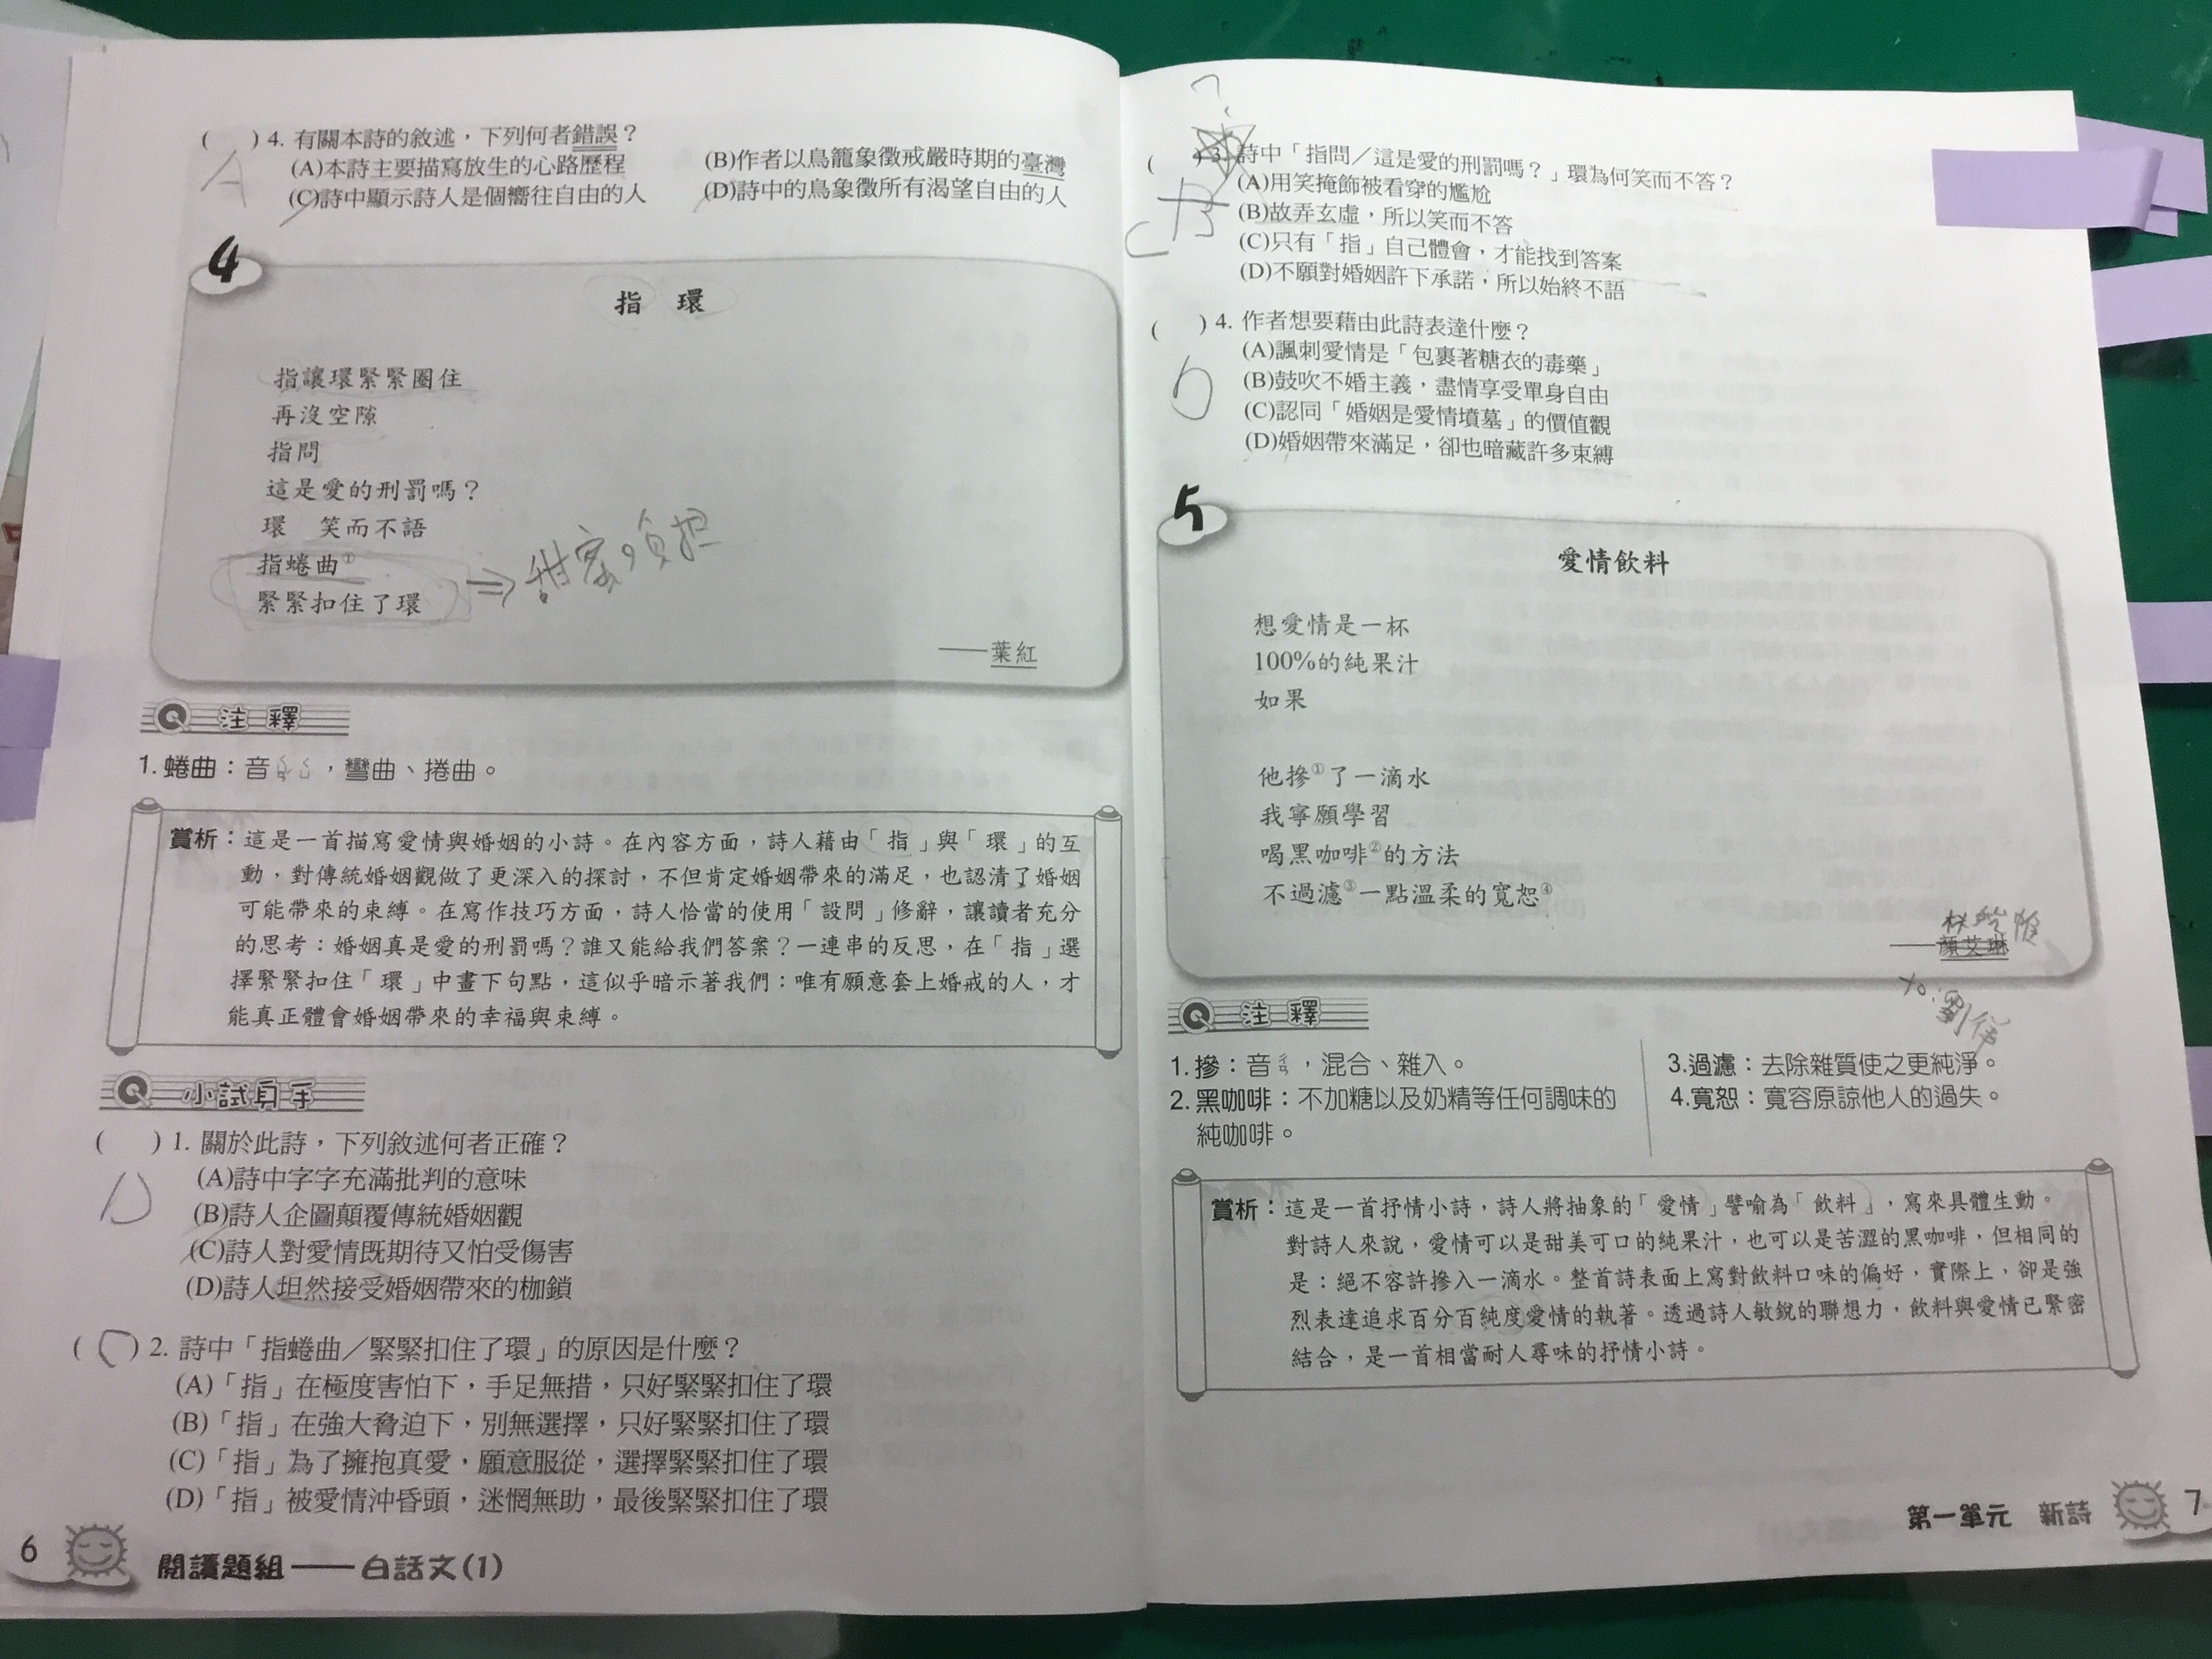 ( ) 4. 有關本詩的敘述，下列何者錯誤？
A
(A)本詩主要描寫放生的心路歷程 (B)作者以鳥籠象徵戒嚴時期的臺灣
(C)詩中顯示詩人是個嚮往自由的人 (D)詩中的鳥象徵所有渴望自由的人
4
指 環
指讓環緊緊圈住
再沒空隙
指問
這是愛的刑罰嗎？
環 笑而不語
指蜷曲①
緊緊扣住了環
⇒甜蜜負担
——葉紅
注釋
1. 蜷曲：音ㄑㄩㄢˊ ㄑㄩ，彎曲、捲曲。
賞析：這是一首描寫愛情與婚姻的小詩。在內容方面，詩人藉由「指」與「環」的互
動，對傳統婚姻觀做了更深入的探討，不但肯定婚姻帶來的滿足，也認清了婚姻
可能帶來的束縛。在寫作技巧方面，詩人恰當的使用「設問」修辭，讓讀者充分
的思考：婚姻真是愛的刑罰嗎？誰又能給我們答案？一連串的反思，在「指」選
擇緊緊扣住「環」中畫下句點，這似乎暗示著我們：唯有願意套上婚戒的人，才
能真正體會婚姻帶來的幸福與束縛。
小試身手
( ) 1. 關於此詩，下列敘述何者正確？
D
(A)詩中字字充滿批判的意味
(B)詩人企圖顛覆傳統婚姻觀
(C)詩人對愛情既期待又怕受傷害
(D)詩人坦然接受婚姻帶來的枷鎖
( C ) 2. 詩中「指蜷曲／緊緊扣住了環」的原因是什麼？
(A)「指」在極度害怕下，手足無措，只好緊緊扣住了環
(B)「指」在強大脅迫下，別無選擇，只好緊緊扣住了環
(C)「指」為了擁抱真愛，願意服從，選擇緊緊扣住了環
(D)「指」被愛情沖昏頭，迷惘無助，最後緊緊扣住了環
6 閱讀題組——白話文(1)
?
( ) 3. 詩中「指問／這是愛的刑罰嗎？」環為何笑而不答？
(A)用笑掩飾被看穿的尷尬
B
(B)故弄玄虛，所以笑而不答
C
(C)只有「指」自己體會，才能找到答案
(D)不願對婚姻許下承諾，所以始終不語
( ) 4. 作者想要藉由此詩表達什麼？
(A)諷刺愛情是「包裹著糖衣的毒藥」
D
(B)鼓吹不婚主義，盡情享受單身自由
(C)認同「婚姻是愛情墳墓」的價值觀
(D)婚姻帶來滿足，卻也暗藏許多束縛
5
愛情飲料
想愛情是一杯
100%的純果汁
如果
他摻①了一滴水
我寧願學習
喝黑咖啡②的方法
不過濾③一點溫柔的寬恕④
——顏艾琳
to:劉
注釋
1. 摻：音ㄔㄢ，混合、雜入。
2. 黑咖啡：不加糖以及奶精等任何調味的
純咖啡。
3.過濾：去除雜質使之更純淨。
4.寬恕：寬容原諒他人的過失。
賞析：這是一首抒情小詩，詩人將抽象的「愛情」譬喻為「飲料」，寫來具體生動。
對詩人來說，愛情可以是甜美可口的純果汁，也可以是苦澀的黑咖啡，但相同的
是：絕不容許摻入一滴水。整首詩表面上寫對飲料口味的偏好，實際上，卻是強
烈表達追求百分百純度愛情的執著。透過詩人敏銳的聯想力，飲料與愛情已緊密
結合，是一首相當耐人尋味的抒情小詩。
第一單元 新詩 7